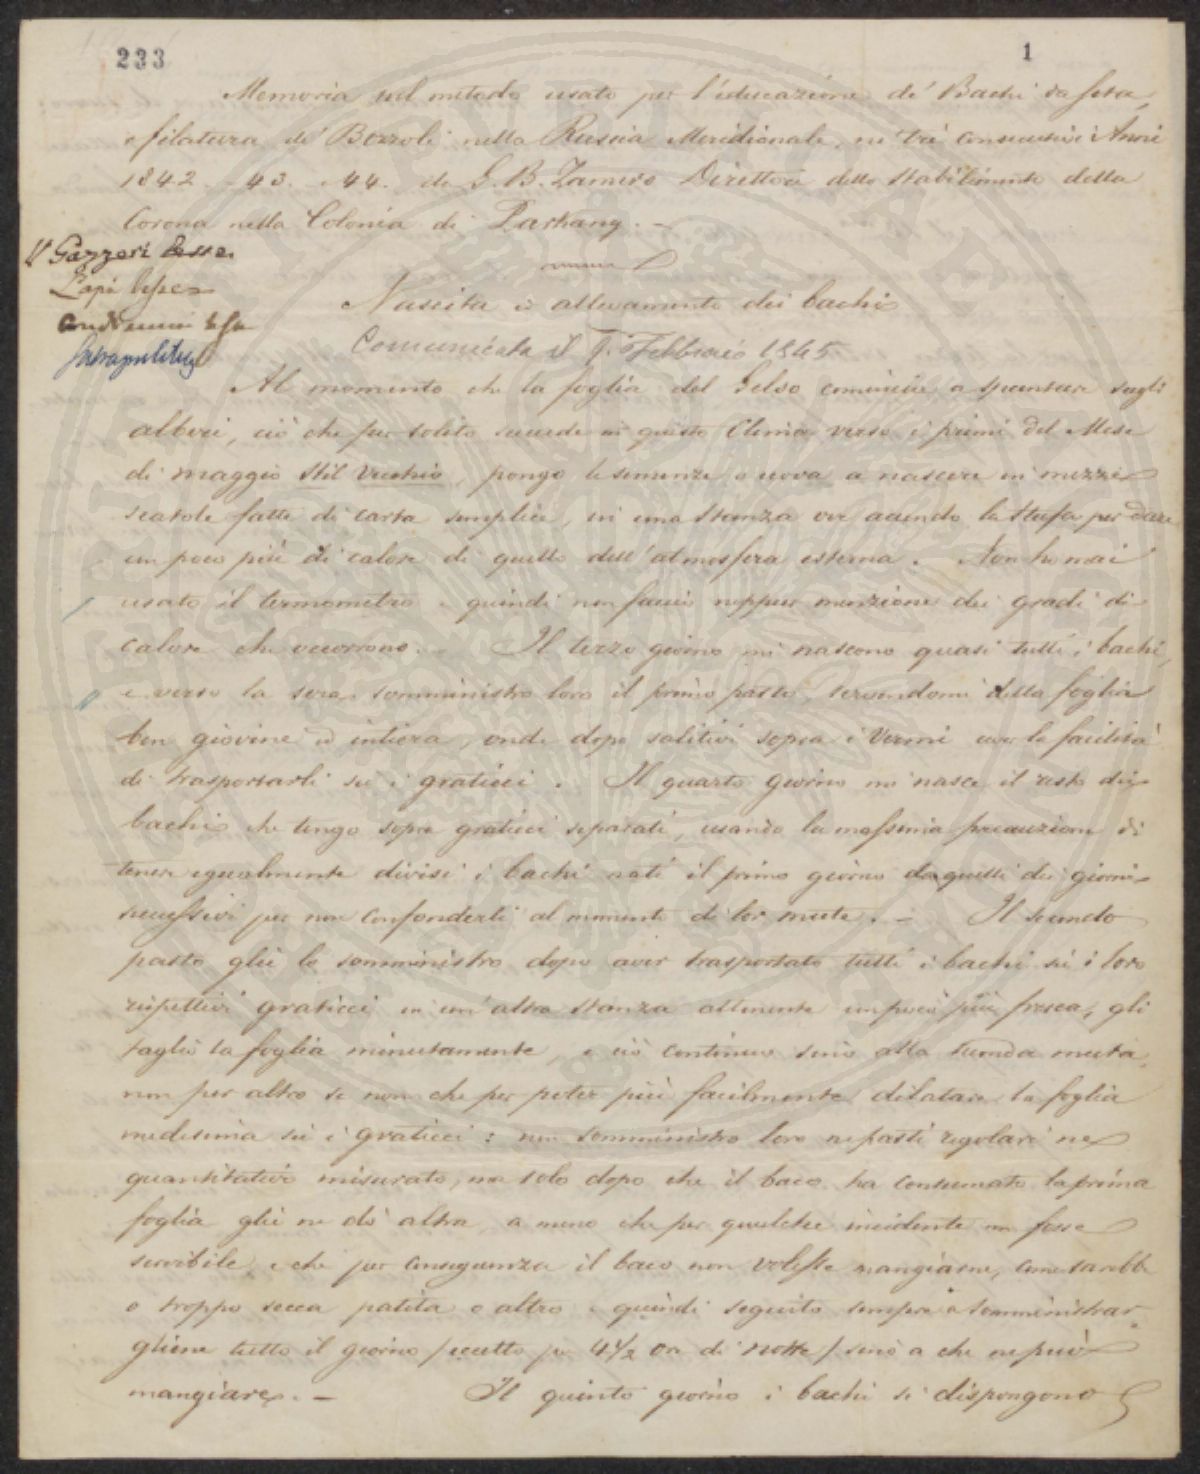 233
1
Memoria sul metodo usato per l'educazione de' Bachi da seta,
e filatura de' Bozzoli nella Russia Meridionale, ne' tre consecutivi Anni
1842 - 43 - 44. da G. B. Zamero Direttore dello Stabilimento della
Corona nella Colonia di Parkany. -
Gazzeri
Lapi
Nascita e allevamento dei bachi
Comunicata il Febbraio 1845
Al momento che la foglia del Gelso comincia a spuntare sugli
alberi, ciò che per solito succede in questo Clima verso i primi del Mese
di maggio stil vecchio, pongo le semenze o uova a nascere in mezze
scatole fatte di carta semplice, in una stanza ove accendo la stufa per dare
un poco più di calore di quello dell'atmosfera esterna. Non ho mai
usato il termometro e quindi non faccio neppur menzione dei gradi di
calore che occorrono. Il terzo giorno mi nascono quasi tutti i bachi,
e verso la sera somministro loro il primo pasto, servendomi della foglia
ben giovine ed intiera, onde dopo salitivi sopra i Vermi aver la facilità
di trasportarli su i graticci. Il quarto giorno mi nasce il resto dei
bachi che tengo sopra graticci separati, usando la massima precauzione di
tenere egualmente divisi i bachi nati il primo giorno da quelli dei giorni
successivi per non confonderli al momento di lor mute. - Il secondo
pasto glie lo somministro dopo aver trasportato tutti i bachi su i loro
rispettivi graticci in un'altra stanza attenente un poco più fresca, gli
taglio la foglia minutamente, e ciò continuo sino alla seconda muta,
non per altro se non che per poter più facilmente dilatare la foglia
medesima su i graticci: non somministro loro ne pasti regolari ne
quantitativo misurato, ma solo dopo che il baco ha consumato la prima
foglia glie ne do altra, a meno che per qualche incidente non fosse
servibile, e che per conseguenza il baco non volesse mangiarne, come sarebbe
o troppo secca patita o altro e quindi seguito sempre a somministrar-
gliene tutto il giorno /eccetto per 4 1/2 ore di notte/ sino a che ne può
mangiare. - Il quinto giorno i bachi si dispongono